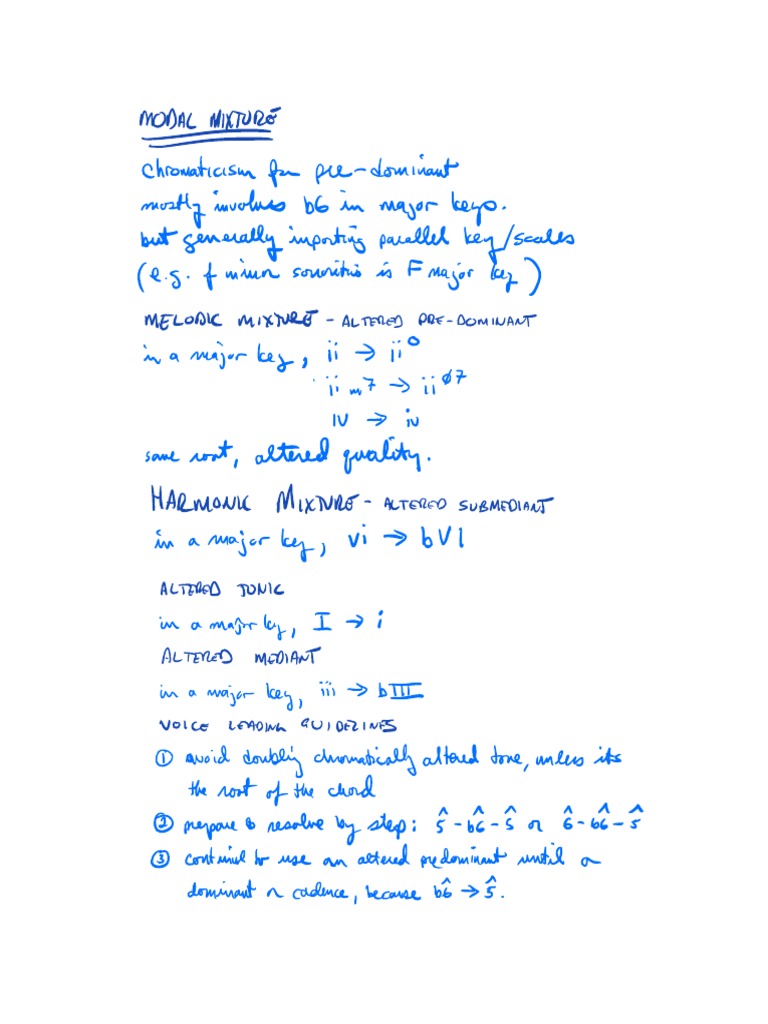 MODAL MIXTURE
Chromaticism for pre-dominant
mostly involves b6 in major keys.
but generally importing parallel key/scales
(e.g. f minor sonorities is F major key)
MELODIC MIXTURE - ALTERED PRE-DOMINANT
in a major key, ii → ii°
ii m7 → iiø7
IV → iv
same root, altered quality.
HARMONIC MIXTURE - ALTERED SUBMEDIANT
in a major key, vi → bVI
ALTERED TONIC
in a major key, I → i
ALTERED MEDIANT
in a major key, iii → bIII
VOICE LEADING GUIDELINES
① avoid doubling chromatically altered tone, unless its
the root of the chord
② prepare & resolve by step: 5̂ - b6̂ - 5̂ or 6̂ - b6̂ - 5̂
③ continue to use an altered predominant until a
dominant or cadence, because b6̂ → 5̂.